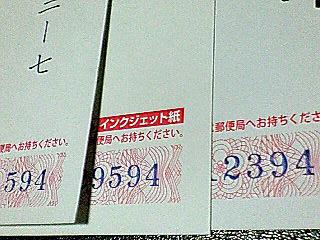 二ー七
便局へお持ちください。
594
インクジェット紙
便局へお持ちください。
9594
郵便局へお持ちください。
2394